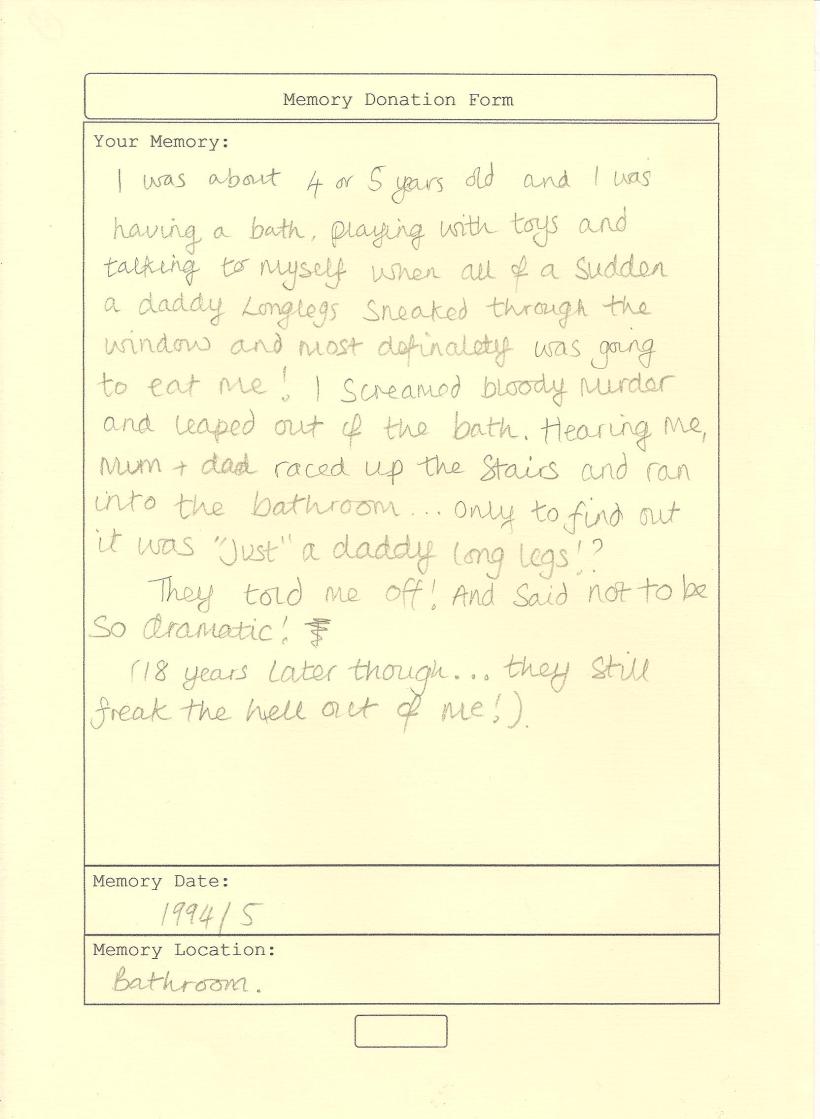 Memory Donation Form
Your Memory:
I was about 4 or 5 years old and I was
having a bath, playing with toys and
talking to myself when all of a sudden
a daddy Longlegs sneaked through the
window and most definalety was going
to eat me! I screamed bloody murder
and leaped out of the bath. Hearing me,
Mum + dad raced up the stairs and ran
into the bathroom... only to find out
it was "just" a daddy long legs!?
They told me off! And said not to be
so dramatic!
(18 years later though... they still
freak the hell out of me!).
Memory Date:
1994/5
Memory Location:
Bathroom.